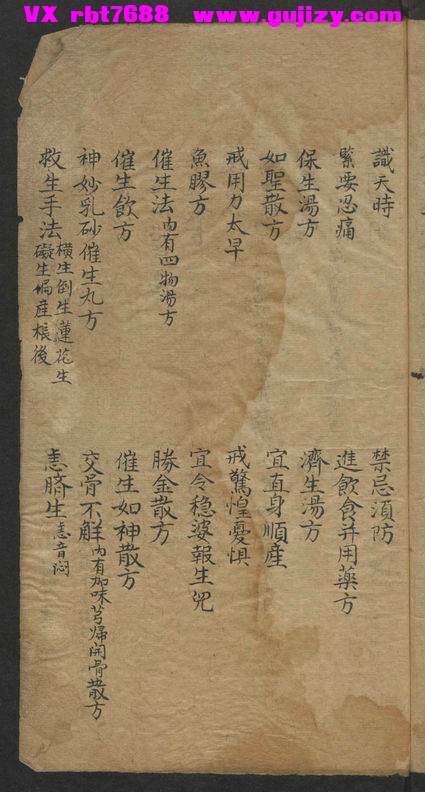 VX rbt7688 www.gujizy.com
識天時 禁忌須防
緊要忍痛 進飲食并用藥方
保生湯方 濟生湯方
如聖散方 宜直身順產
戒用力太早 戒驚惶憂惧
魚膠方 宜令穩婆報生兒
催生法內有四物湯方 勝金散方
催生飲方 催生如神散方
神妙乳砂催生丸方 交骨不觧內有加味芎歸開骨散方
救生手法橫生倒生蓮花生礙生偏產棖後 臍生音悶